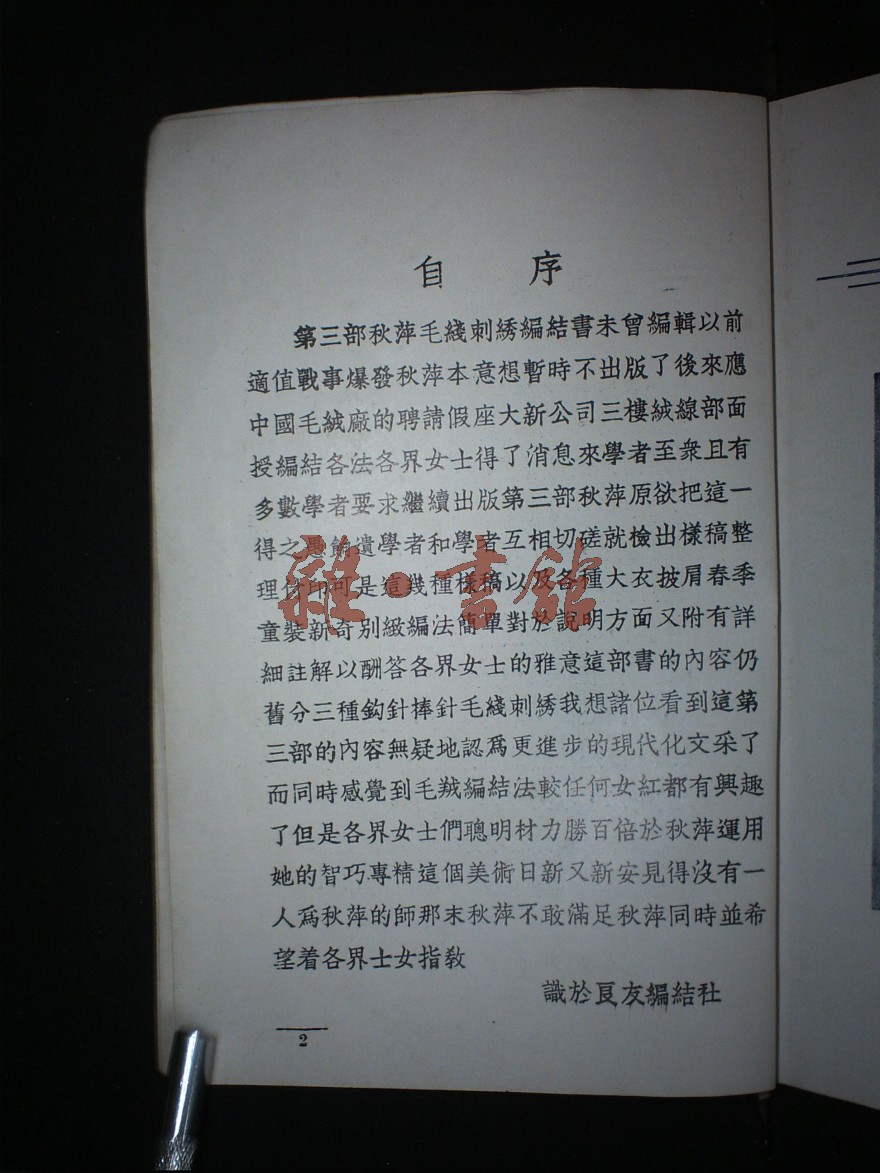 自 序
第三部秋萍毛綫刺綉編結書未曾編輯以前
適值戰事爆發秋萍本意想暫時不出版了後來應
中國毛絨廠的聘請假座大新公司三樓絨線部面
授編結各法各界女士得了消息來學者至衆且有
多數學者要求繼續出版第三部秋萍原欲把這一
得之愚餉遺學者和學者互相切磋就檢出樣稿整
理付印可是這幾種樣稿以及各種大衣披肩春季
童裝新奇別緻編法簡單對於說明方面又附有詳
細註解以酬答各界女士的雅意這部書的內容仍
舊分三種鈎針棒針毛綫刺綉我想諸位看到這第
三部的內容無疑地認爲更進步的現代化文采了
而同時感覺到毛羢編結法較任何女紅都有興趣
了但是各界女士們聰明材力勝百倍於秋萍運用
她的智巧專精這個美術日新又新安見得沒有一
人爲秋萍的師那末秋萍不敢滿足秋萍同時並希
望着各界士女指敎
識於良友編結社
2
雜·書館